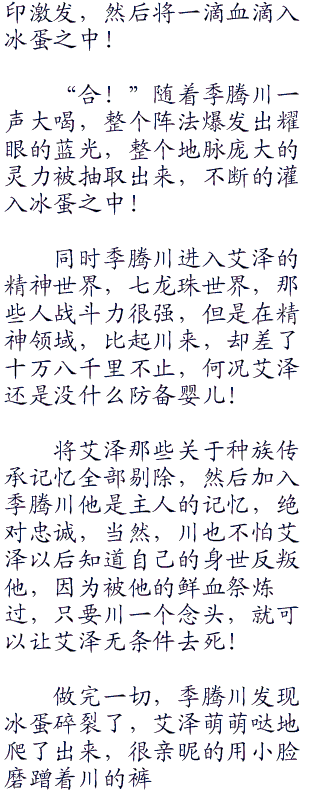 印激发，然后将一滴血滴入
冰蛋之中！
“合！”随着季腾川一
声大喝，整个阵法爆发出耀
眼的蓝光，整个地脉庞大的
灵力被抽取出来，不断的灌
入冰蛋之中！
同时季腾川进入艾泽的
精神世界，七龙珠世界，那
些人战斗力很强，但是在精
神领域，比起川来，却差了
十万八千里不止，何况艾泽
还是没什么防备婴儿！
将艾泽那些关于种族传
承记忆全部剔除，然后加入
季腾川他是主人的记忆，绝
对忠诚，当然，川也不怕艾
泽以后知道自己的身世反叛
他，因为被他的鲜血祭炼
过，只要川一个念头，就可
以让艾泽无条件去死！
做完一切，季腾川发现
冰蛋碎裂了，艾泽萌萌哒地
爬了出来，很亲昵的用小脸
磨蹭着川的裤